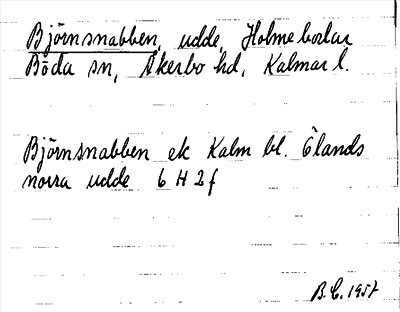 Björnsnabben, udde, Holmebodar
Böda sn, Åkerbo hd, Kalmar l.
Björnsnabben ek Kalm bl. Ölands
norra udde 6 H 2 f
B.C. 1957